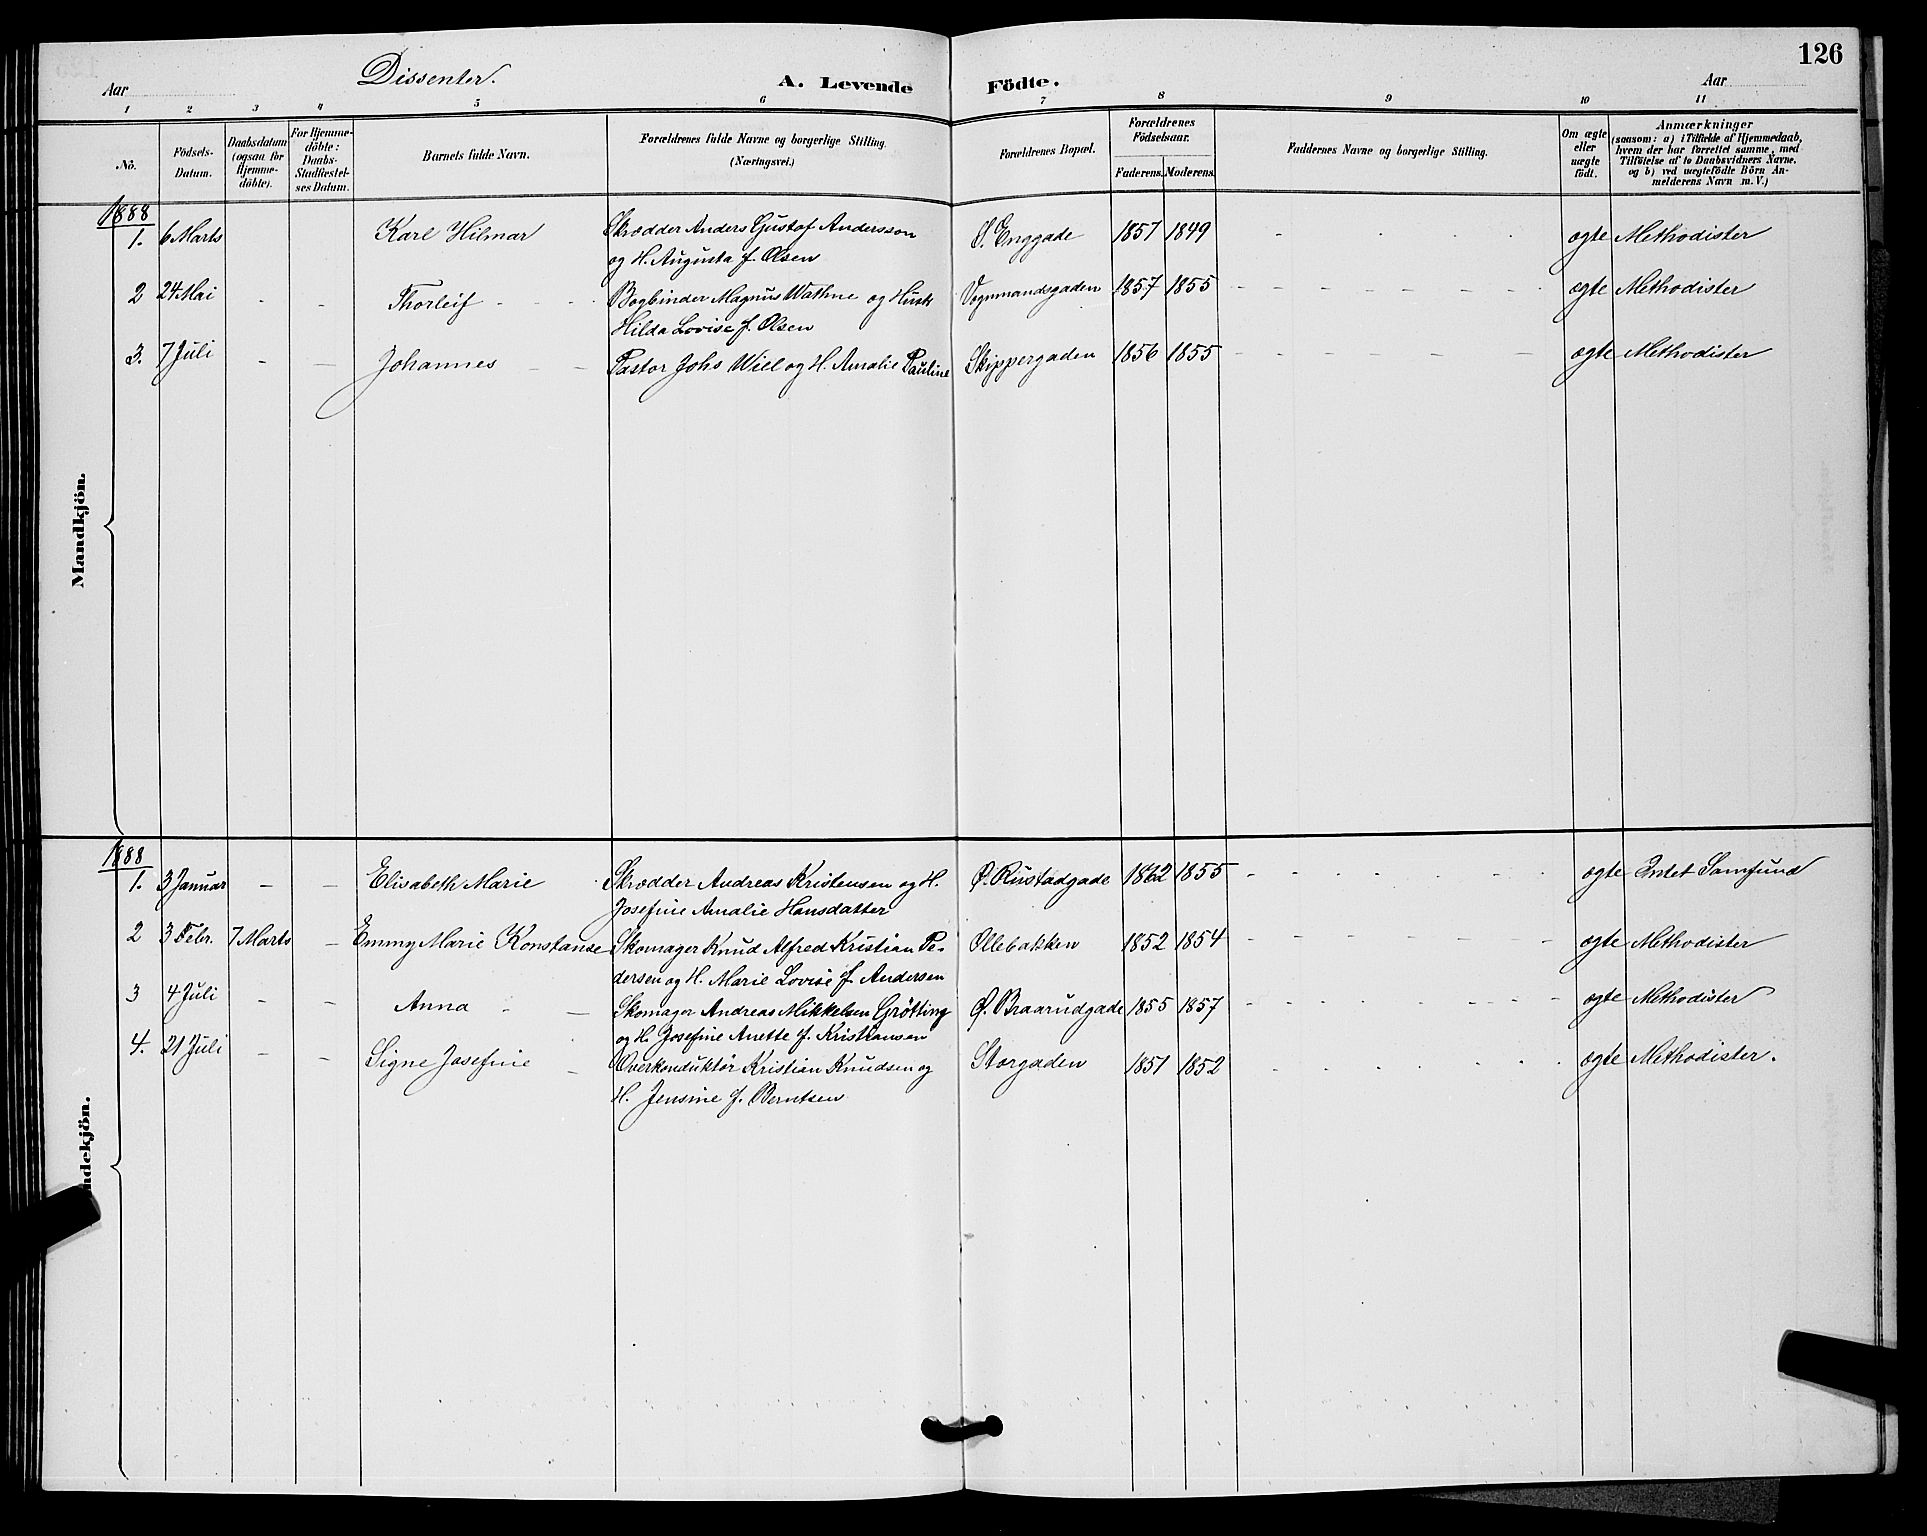 126
Dissenter.
Aar A. Levende Födte. Aar
1 2 3 4 5 6 7 8 9 10 11
No. Födsels-Datum. Daabsdatum (ogsaa for Hjemme-döbte). For Hjemme-döbte: Daabs-Stadfæstel-ses Datum. Barnets fulde Navn. Forældrenes fulde Navne og borgerlige Stilling. (Næringsvei.) Forældrenes Bopæl. Forældrenes Födselsaar. Faderens. Moderens. Faddernes Navne og borgerlige Stilling. Om ægte eller uægte födt. Anmærkninger (saasom: a) i Tilfælde af Hjemmedaab, hvem der har forrettet samme, med Tilföielse af to Daabsvidners Navne, og b) ved uægtefödte Börn An-melderens Navn m. V.)
Mandkjön.
1888
1. 6 Marts Karl Hilmar Skrædder Anders Gustof Andersson Ø. Enggade 1857 1849 - ægte Methodister
og H. Augusta f. Olsen
2 24 Mai - - Thorleif - Bogbinder Magnus Wathne og Hust Vognmandsgaden 1857 1855 - ægte Methodister
Hilda Lovise f. Olsen
3. 7 Juli - - Johannes - Pastor Johs Wiel og H. Amalie Pauline Skippergaden 1856 1855 - ægte Methodister
ndekjön.
1888
1. 3 Januar - - Elisabeth Marie Skrædder Andreas Kristensen og H. Ø. Rustadgade 1862 1855 - ægte Intet Samfund
Josefine Amalie Hansdatter
2 3 Febr. 7 Marts - Emmy Marie Konstanse Skomager Knud Alfred Kristian Pe- Ollebakken 1852 1854 - ægte Methodister
dersen og H. Marie Lovise f. Andersen
3 4 Juli - - Anna - Skomager Andreas Mikkelsen Grötting Ø. Braarudgade 1855 1857 - ægte Methodister
og H. Josefine Anette f. Kristiansen
4. 21 Juli - - Signe Josefine - Overkonduktör Kristian Knudsen og Storgaden 1851 1852 - ægte Methodister.
H. Jensine f. Berntsen